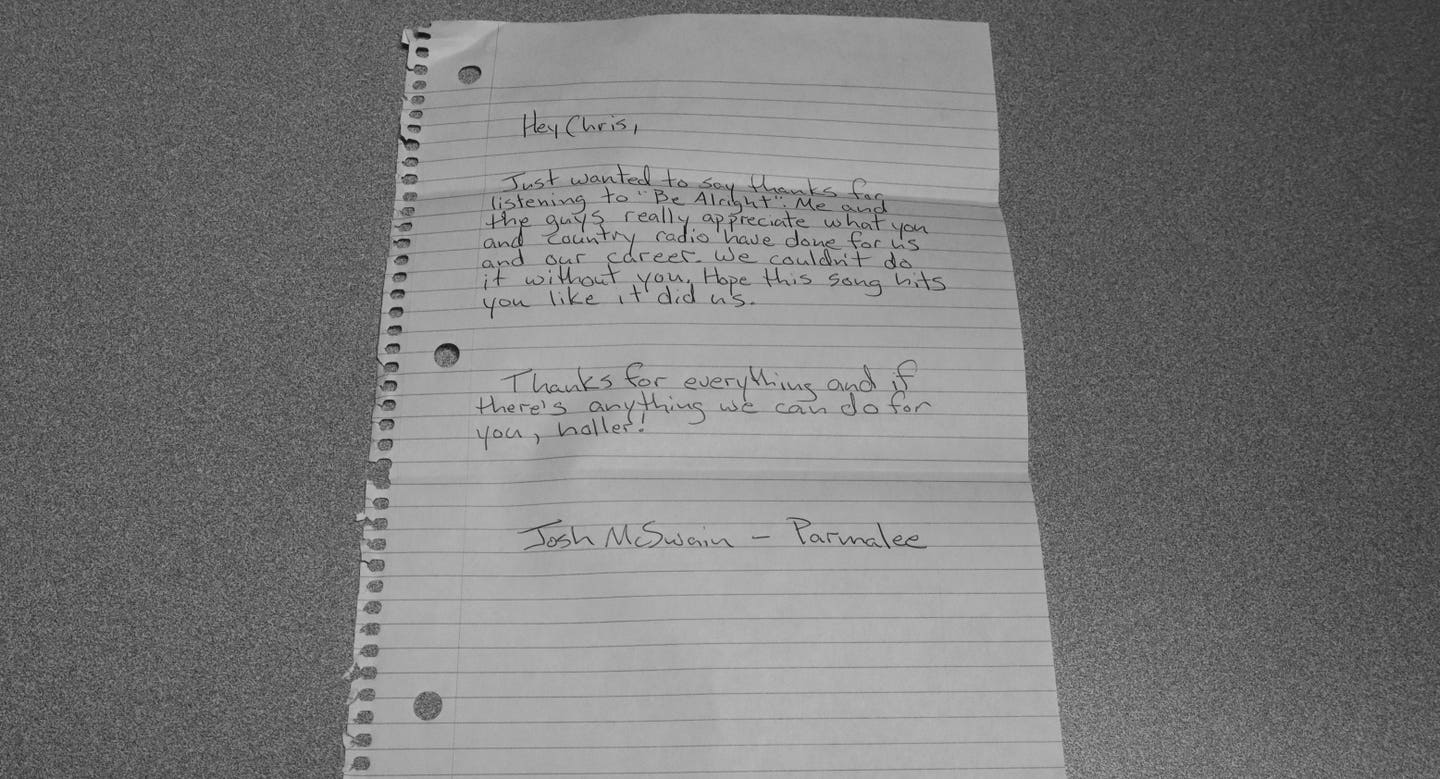 Hey Chris,
Just wanted to say thanks for
listening to "Be Alright". Me and
the guys really appreciate what you
and country radio have done for us
and our career. We couldn't do
it without you. Hope this song hits
you like it did us.
Thanks for everything and if
there's anything we can do for
you, holler!
Josh McSwain - Parmalee